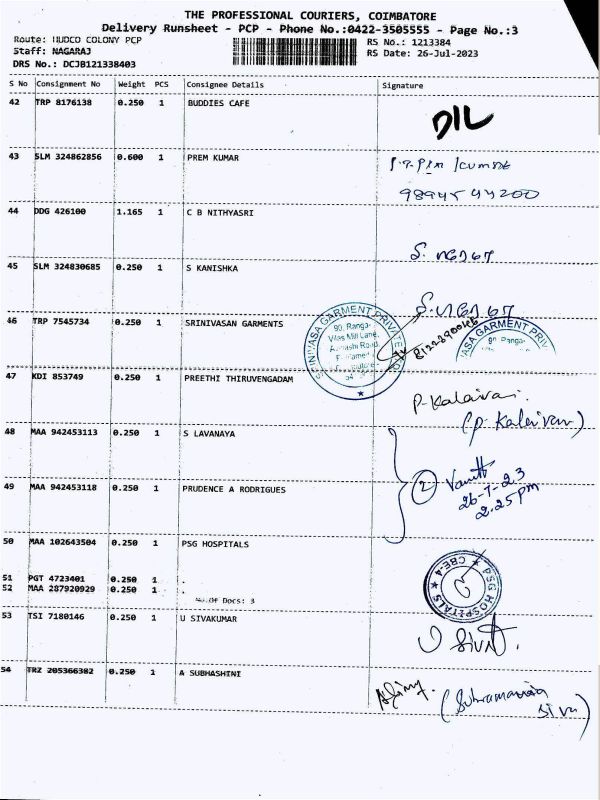 THE PROFESSIONAL COURIERS, COIMBATORE
Delivery Runsheet - PCP - Phone No.:0422-3505555 - Page No.:3
Route: HUDCO COLONY PCP
Staff: NAGARAJ
DRS No.: DCJB121338403
RS No.: 1213384
RS Date: 26-Jul-2023
S No Consignment No Weight PCS Consignee Details Signature
42 TRP 8176138 0.250 1 BUDDIES CAFE
DIL
43 SLM 324862856 0.600 1 PREM KUMAR
9894544200
44 DDG 426100 1.165 1 C B NITHYASRI
45 SLM 324830685 0.250 1 S KANISHKA
46 TRP 7545734 0.250 1 SRINIVASAN GARMENTS
SRINIVASA GARMENT PRIVATE
90, Ranga-
Vilas Mill Lane,
8122890046
47 KDI 853749 0.250 1 PREETHI THIRUVENGADAM
P. Kalaivani
48 MAA 942453113 0.250 1 S LAVANAYA
2
26-7-23
2.25pm
49 MAA 942453118 0.250 1 PRUDENCE A RODRIGUES
50 MAA 102643504 0.250 1 PSG HOSPITALS
51 PGT 4723401 0.250 1 .
52 MAA 287920929 0.250 1 .
No.Of Docs: 3
PSG HOSPITALS
CBE-4
53 TSI 7180146 0.250 1 U SIVAKUMAR
54 TRZ 205366382 0.250 1 A SUBHASHINI